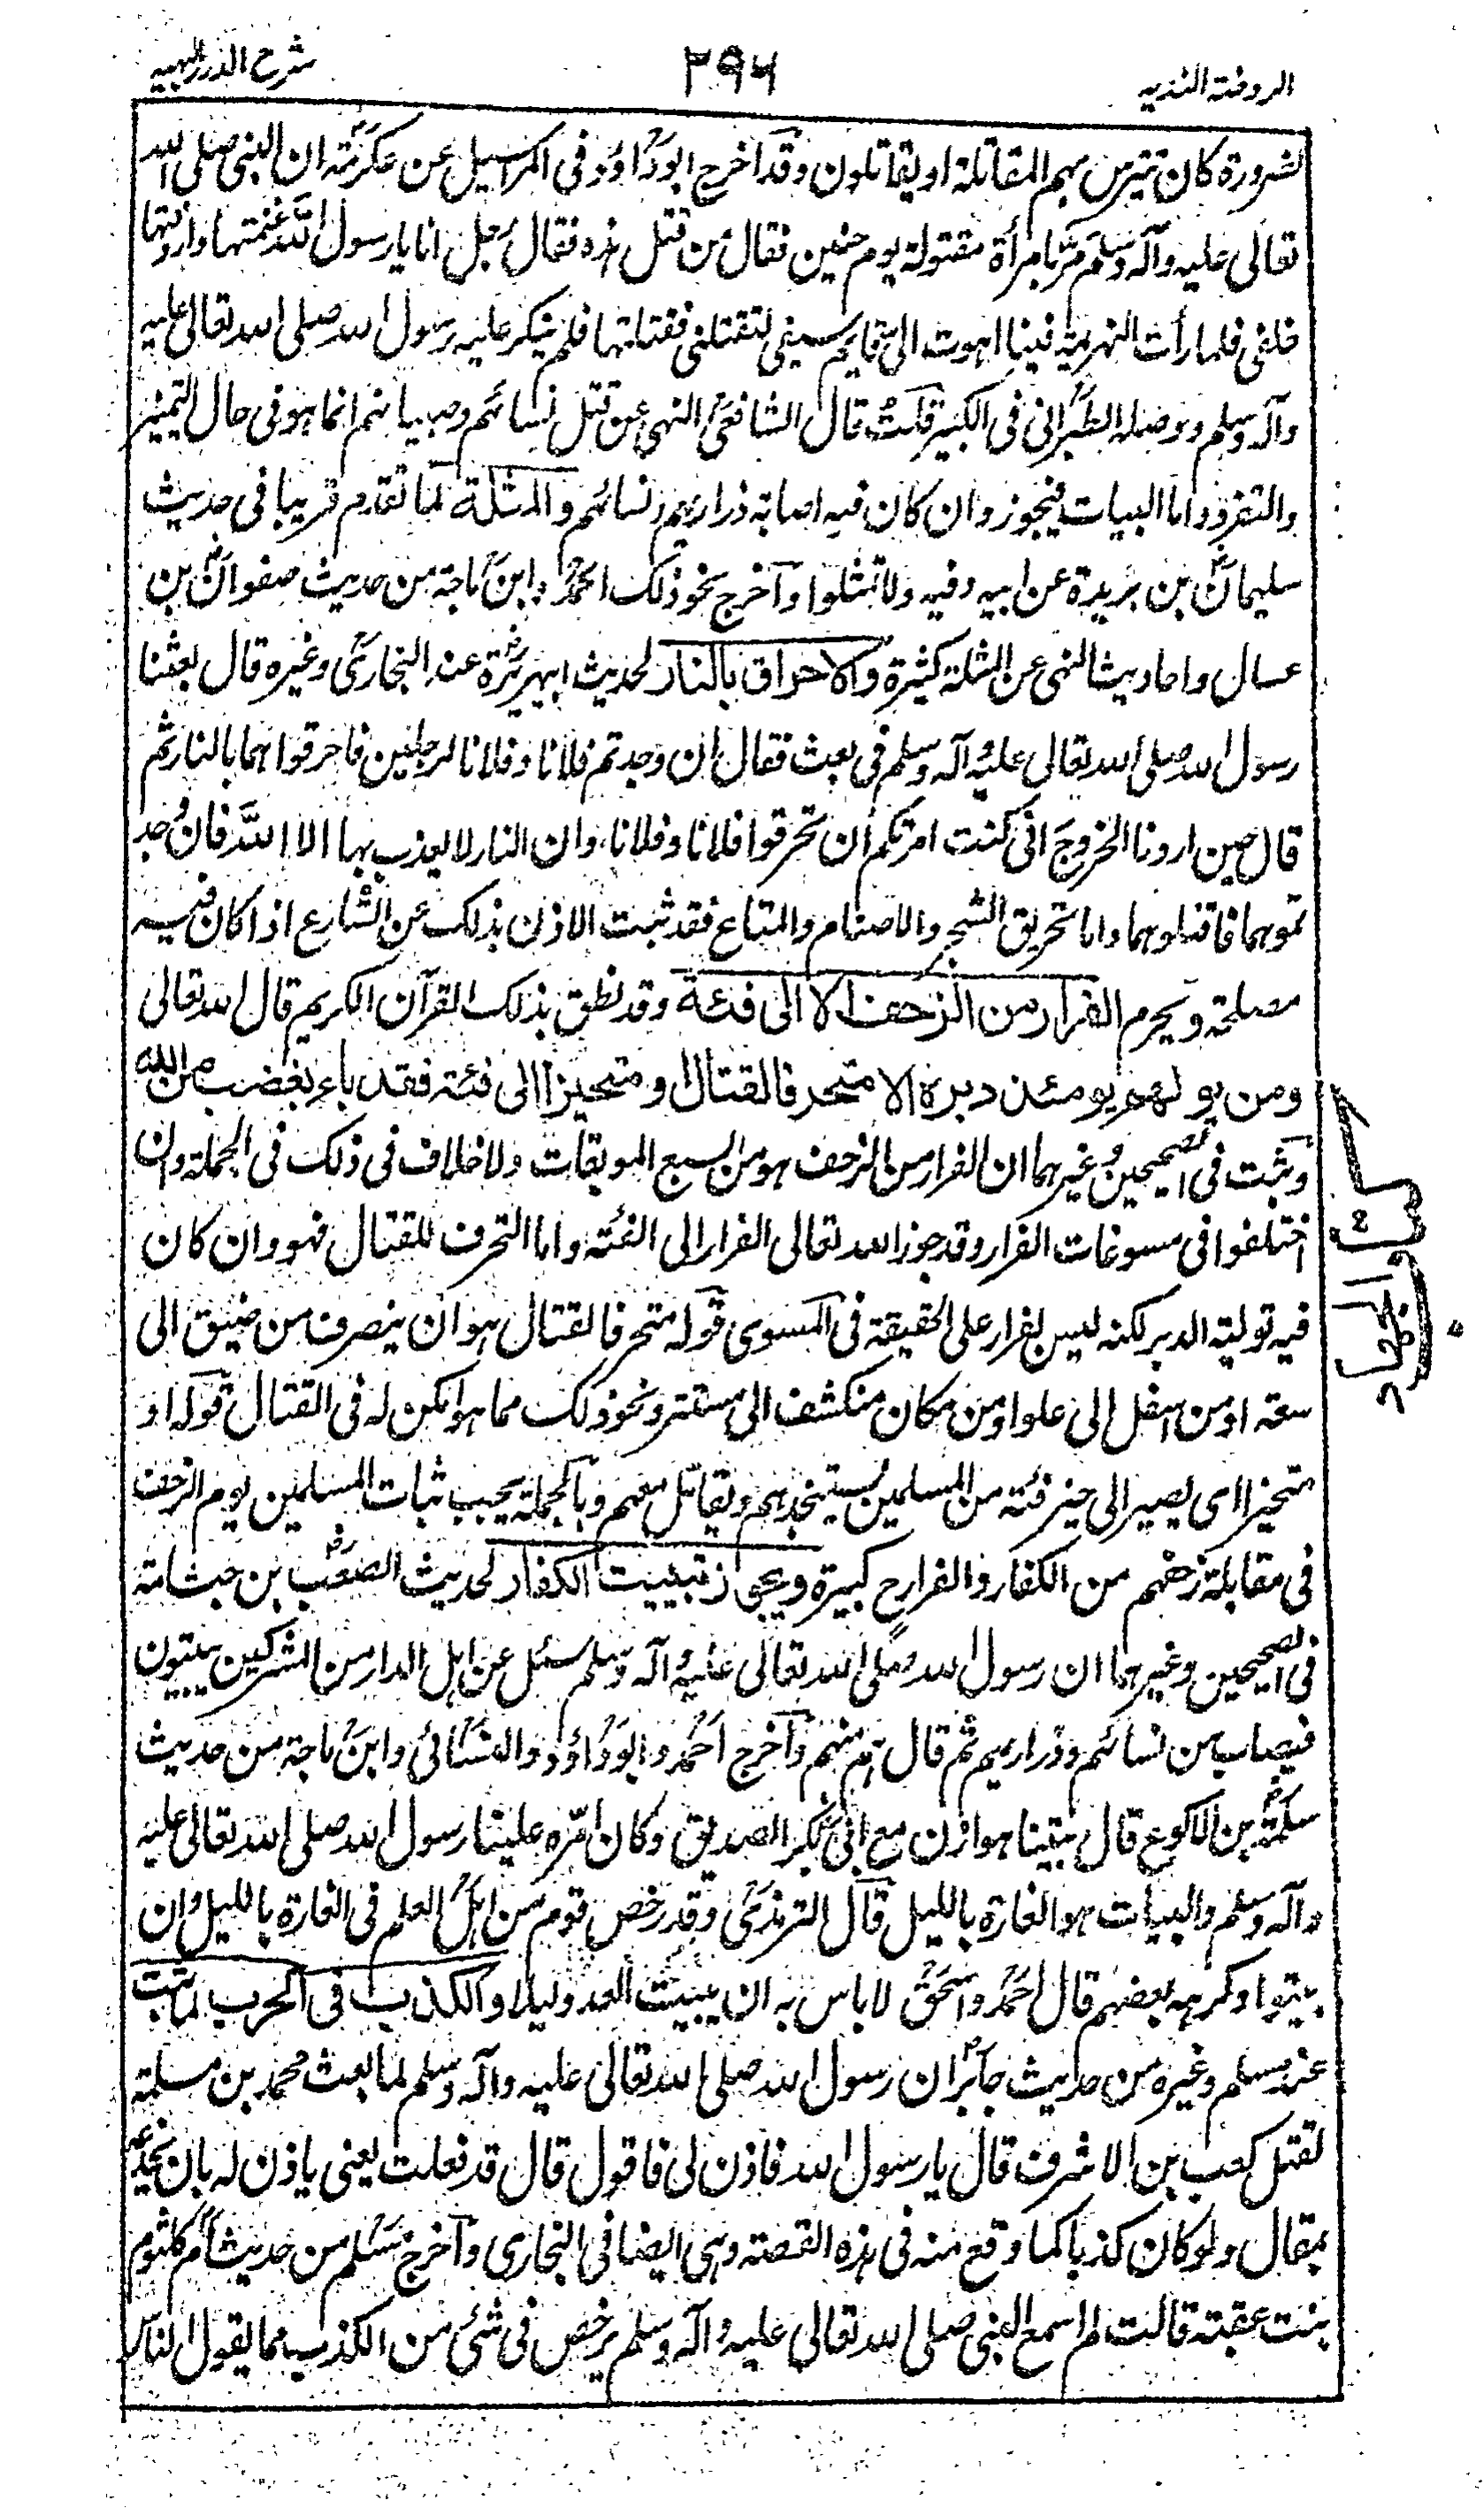 الروضة الندیه
۳۹۶
شرح الدرر البهیه
لضرورة كان تيترس بهم المقاتلة او يقاتلون وقد اخرج ابو داؤد فى المراسيل عن عكرمة ان النبى صلى الله
تعالى عليه وآله وسلم مر بامرأة مقتولة يوم حنين فقال من قتل هذه فقال رجل انا يا رسول الله غنمتها واردفتها
خلفى فلما رأت الهزيمة فينا اهوت الى قايم سيفى لتقتلنى فقتلتها فلم ينكر عليه رسول الله صلى الله تعالى عليه
وآله وسلم ووصله الطبرانى فى الكبير قلت قال الشافعى النهى عن قتل نسائهم وصبيانهم انما هو فى حال التميز
والتفرد واما البيات فيجوز وان كان فيه اصابة ذراريهم ونسائهم والمثلة لما تقدم قريبا فى حديث
سليمان بن بريدة عن ابيه وفيه ولا تمثلوا وآخرج نحو ذلك احمد وابن ماجة من حديث صفوان بن
عسال واحاديث النهى عن المثلة كثيرة والاحراق بالنار لحديث ابيهريرة عند البخارى وغيره قال بعثنا
رسول الله صلى الله تعالى عليه وآله وسلم فى بعث فقال ان وجدتم فلانا وفلانا لرجلين فاحرقوا هما بالنار ثم
قال حين اردنا الخروج انى كنت امرتكم ان تحرقوا فلانا وفلانا وان النار لا يعذب بها الا الله فان وجد
تموهما فاقتلوهما واما تحريق الشجر والاصنام والمتاع فقد ثبت الاذن بذلك عن الشارع اذا كان فيه
مصلحة ويحرم الفرار من الزحف الا الى فئة وقد نطق بذلك القرآن الكريم قال الله تعالى
ومن يولهم يومئذ دبره الا متحرفا لقتال او متحيزا الى فئة فقد باء بغضب من الله
وثبت فى الصحيحين وغيرهما ان الفرار من الزحف هو من السبع الموبقات ولا خلاف فى ذلك فى الجملة وان
اختلفوا فى مسوغات الفرار وقد جوز الله تعالى الفرار الى الفئة واما التحرف للقتال فهو وان كان
فيه تولية الدبر لكنه ليس بفرار على الحقيقة فى المسوى قوله متحرفا لقتال هو ان ينصرف من ضيق الى
سعة او من اسفل الى علو او من مكان منكشف الى مستتر ونحو ذلك مما هو امكن له فى القتال قوله او
متحيزا اى يصير الى حيز فئة من المسلمين يستنجدهم ويقاتل معهم وبالجملة يجب ثبات المسلمين يوم الزحف
فى مقابلة زحفهم من الكفار والفرار ح كبيرة ويجوز تبييت الكفار لحديث الصعب بن جثامة
فى الصحيحين وغيرهما ان رسول الله صلى الله تعالى عليه وآله وسلم سئل عن اهل الدار من المشركين يبيتون
فيصاب من نسائهم وذراريهم ثم قال هم منهم وآخرج احمد وابو داؤد والنسائى وابن ماجة من حديث
سلمة بن الاكوع قال بيتنا هوازن مع ابى بكر الصديق وكان امره علينا رسول الله صلى الله تعالى عليه
وآله وسلم والبيات هو الغارة بالليل قال الترمذى وقد رخص قوم من اهل العلم فى الغارة بالليل وان
يبيتوا وكرهه بعضهم قال احمد واسحق لا باس به ان يبيت العدو ليلا والكذب فى الحرب لما ثبت
عند مسلم وغيره من حديث جابر ان رسول الله صلى الله تعالى عليه وآله وسلم لما بعث محمد بن مسلمة
لقتل كعب بن الاشرف قال يا رسول الله فاذن لى فاقول قال قد فعلت يعنى ياذن له بان يخدعه
بمقال ولو كان كذبا كما وقع منه فى هذه القصة وهى ايضا فى البخارى وآخرج مسلم من حديث ام كلثوم
بنت عقبة قالت لم اسمع النبى صلى الله تعالى عليه وآله وسلم يرخص فى شئ من الكذب مما يقول الناس